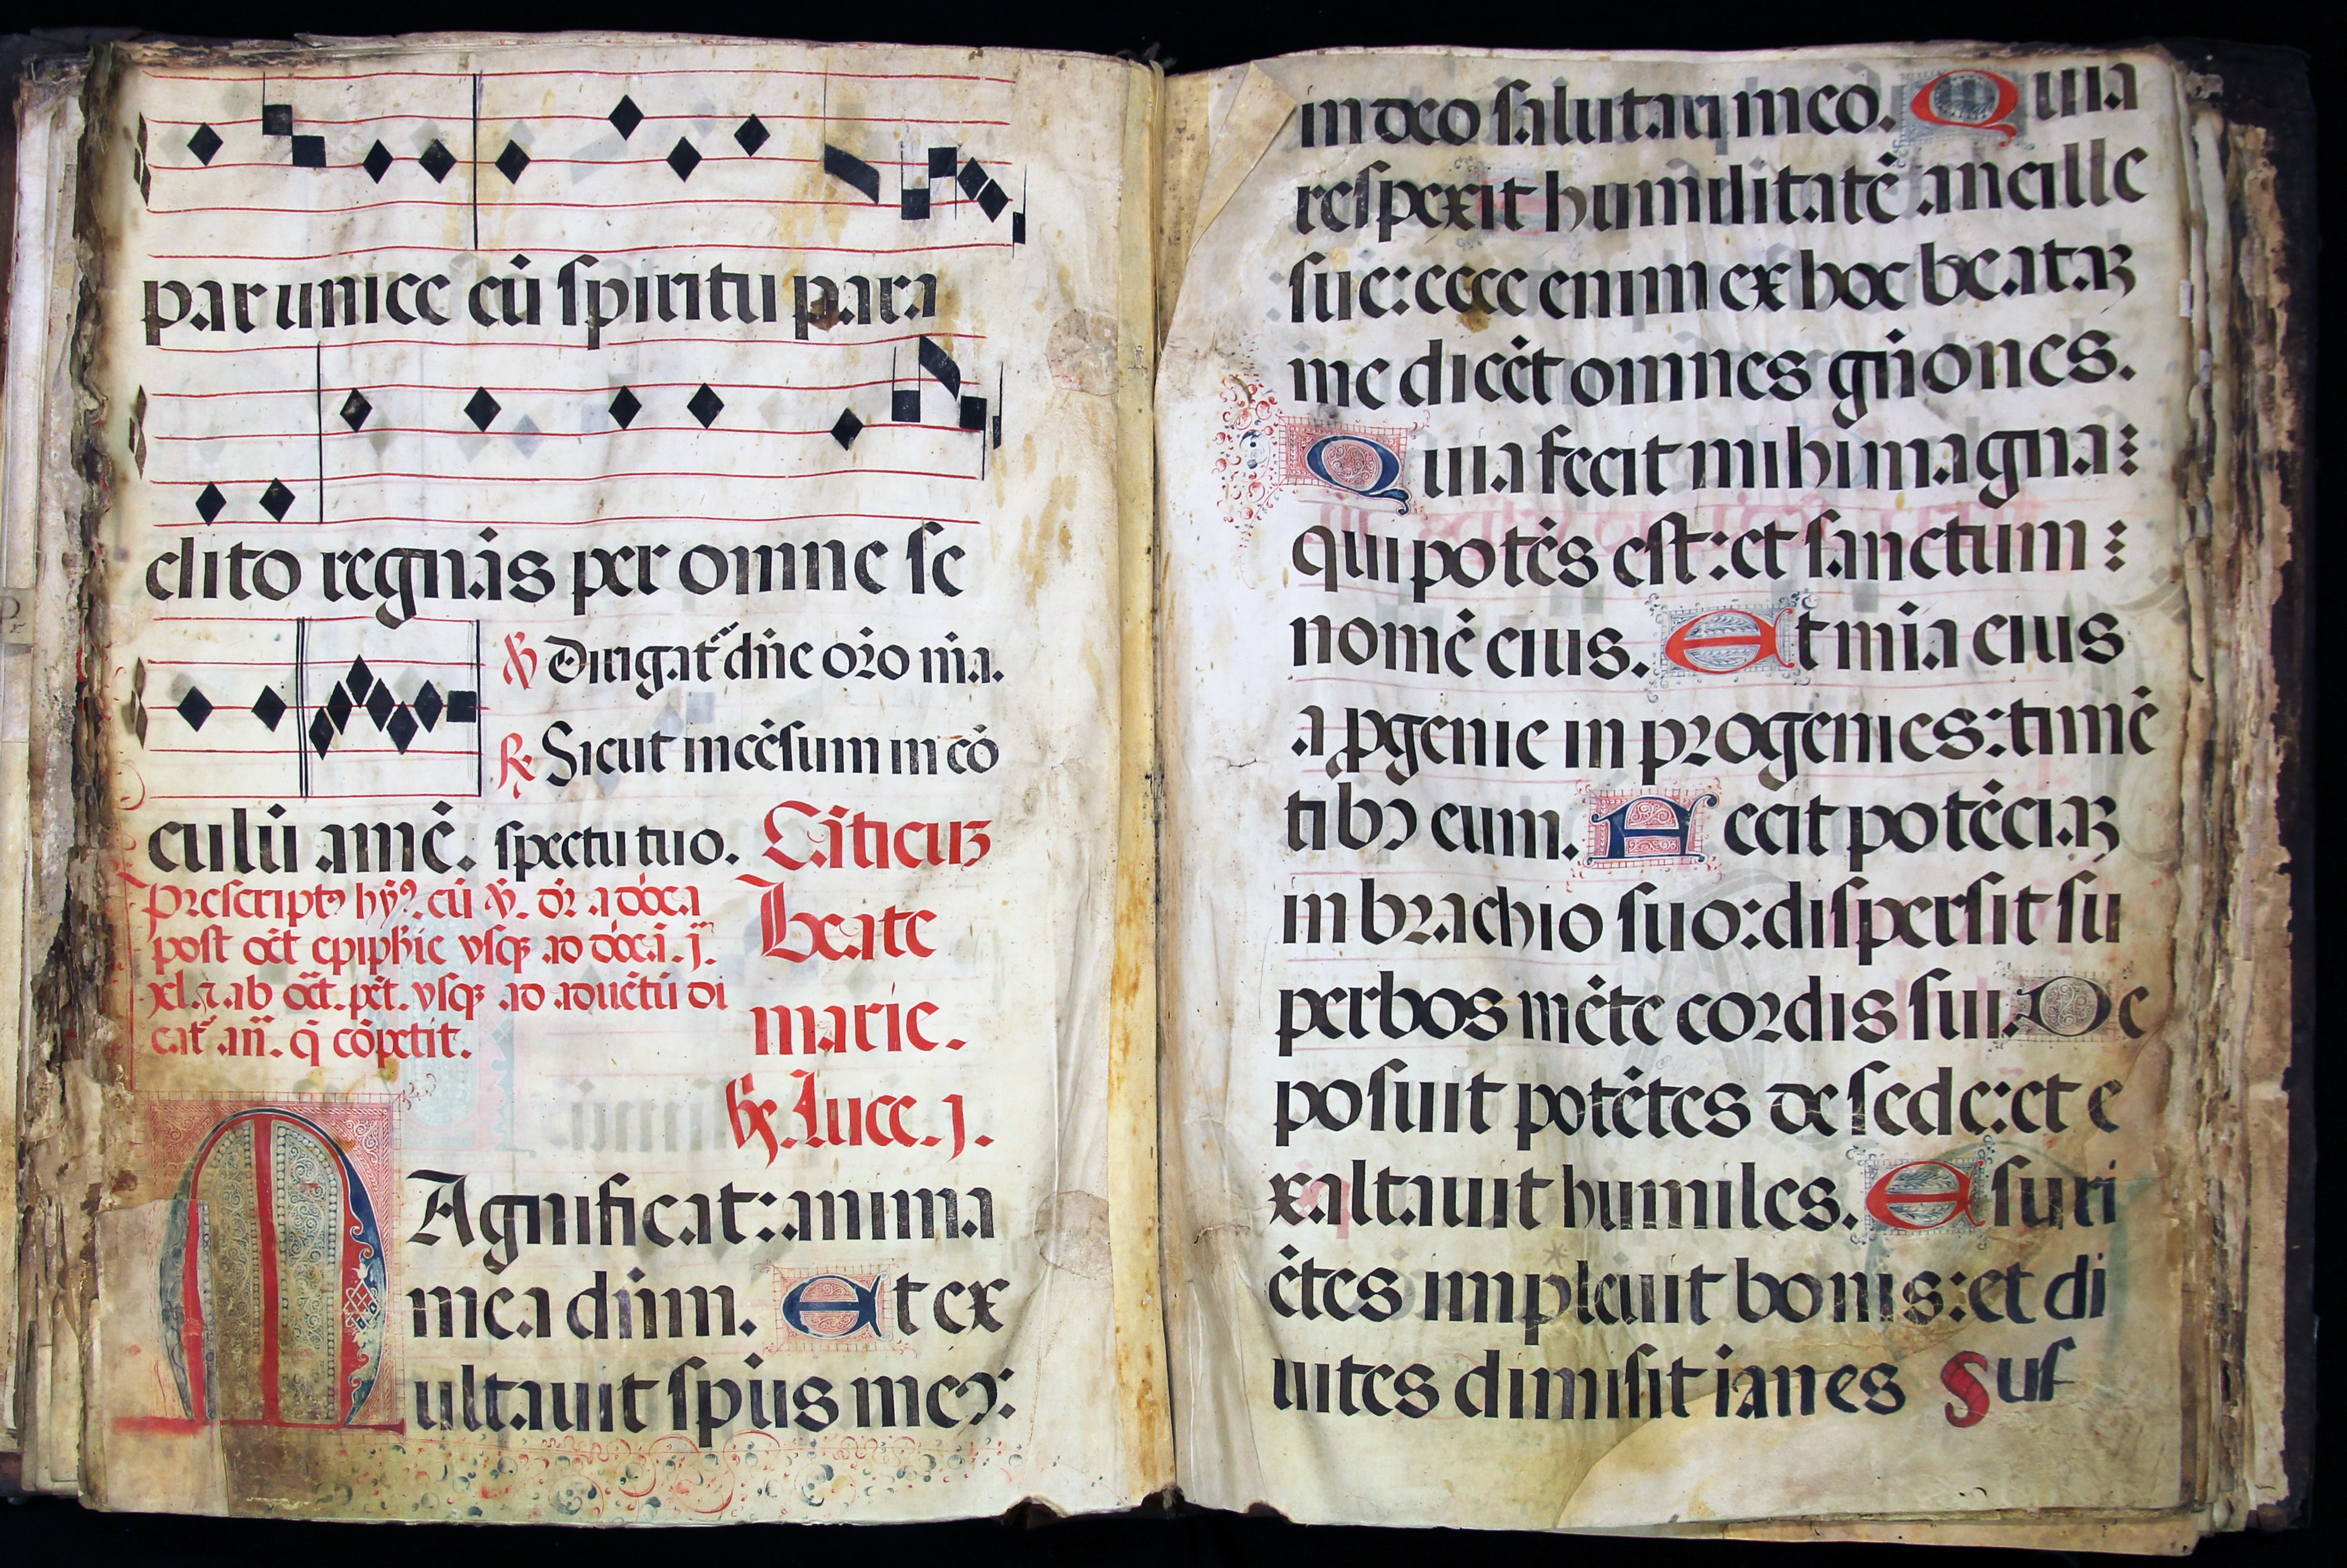 par unice cū spiritu para
clito regnās per omne se
℣ Dirigat᷑ dn̄e or̄o m̄a.
℟ Sicut incēsum in cō
culū amē. spectu tuo. Cāticuꝫ
Prescriptꝰ hȳꝰ. cū ℣. dr̄ a dōca
post oct̄ epiph̄ie vsqꝫ ad dōca.ī. j.
xl. ⁊ ab oct̄. pēt. vsqꝫ ad aduētū di
cat᷑ an̄. q̄ cōpetit.
Beate
marie.
Luce. j.
MAgnificat: anima
mea dn̄m. Et ex
ultauit sp̄us meꝰ:
in deo salutari meo. Quia
respexit humilitatē ancille
sue: ecce enim ex hoc beataꝫ
me dicēt omnes gn̄iones.
Quia fecit mihi magna:
qui potēs est: et sanctum:
nomē eius. Et mīa eius
a ꝓgenie in progenies: timē
tibꝰ eum. Fecit potēciaꝫ
in brachio suo: dispersit su
perbos mēte cordis sui. De
posuit potētes de sede: et e
xaltauit humiles. Esuri
ētes impleuit bonis: et di
uites dimisit ianes Sus